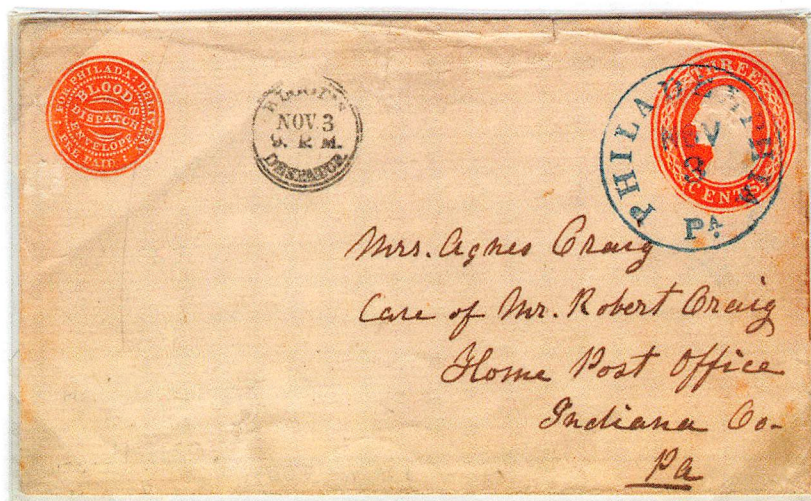 FOR PHILADA: DELIVERY
BLOOD'S
DISPATCH
ENVELOPE
PRE PAID
NOV. 3
P. M.
DESPATCH
THREE
CENTS
PHILADELPHIA
NOV
3
PA.
Mrs. Agnes Craig
Care of Mr. Robert Craig
Home Post Office
Indiana Co-
Pa